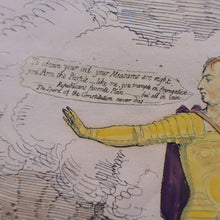 To obtain your end, your Measures are right,
you Arm the People — like me, you trample on Prerogative:
Republicans favorite Plan — but all in vain
The Sword of the Constitution never